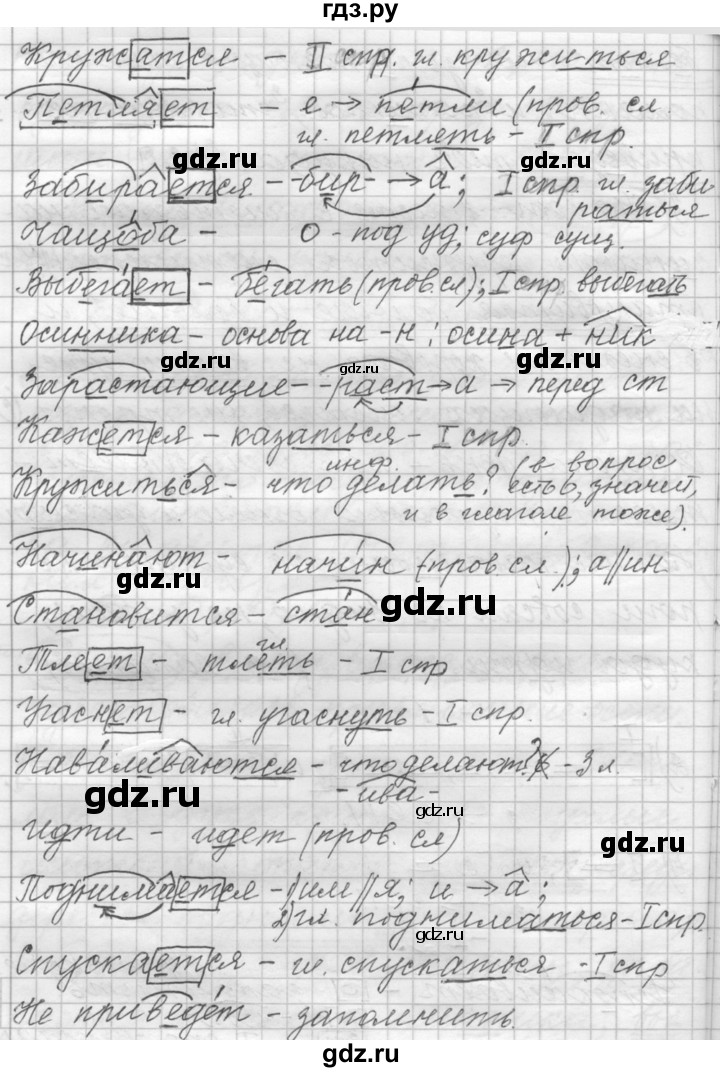 гдз.ру
Кружатся – II спр. гл. кружиться
Петляет – е → петли (пров. сл.
гл. петлять – I спр.
gdz.ru gdz.ru
Забирается – -бир- → а; I спр. гл. заби-
раться
Чащоба – о – под уд; суф сущ.
gdz.ru
Выбегает – бегать (пров.сл); I спр. выбегать
Осинника – основа на -н: осина + ник
gdz.ru gdz.ru
Зарастающие – -раст → а → перед ст
gdz.ru
Кажется – казаться – I спр.
инф. (в вопрос
Кружиться – что делать? есть ь, значит,
и в глаголе тоже).
gdz.ru
Начинают – начин (пров. сл.); а//ин
gdz.ru
Становится – стан gdz.ru
гл.
Тлеет – тлеть – I спр
gdz.ru
Угаснет – гл. угаснуть – I спр.
gdz.ru
Наваливаются – что делают? – 3 л.
-ива-
gdz.ru gdz.ru
Идти – идет (пров. сл)
gdz.ru
Поднимается – 1) им//я; и → а;
2) гл. подниматься – I спр.
gdz.ru gdz.ru
Спускается – гл. спускаться – I спр
gdz.ru
Не приведёт – запомнить.
gdz.ru